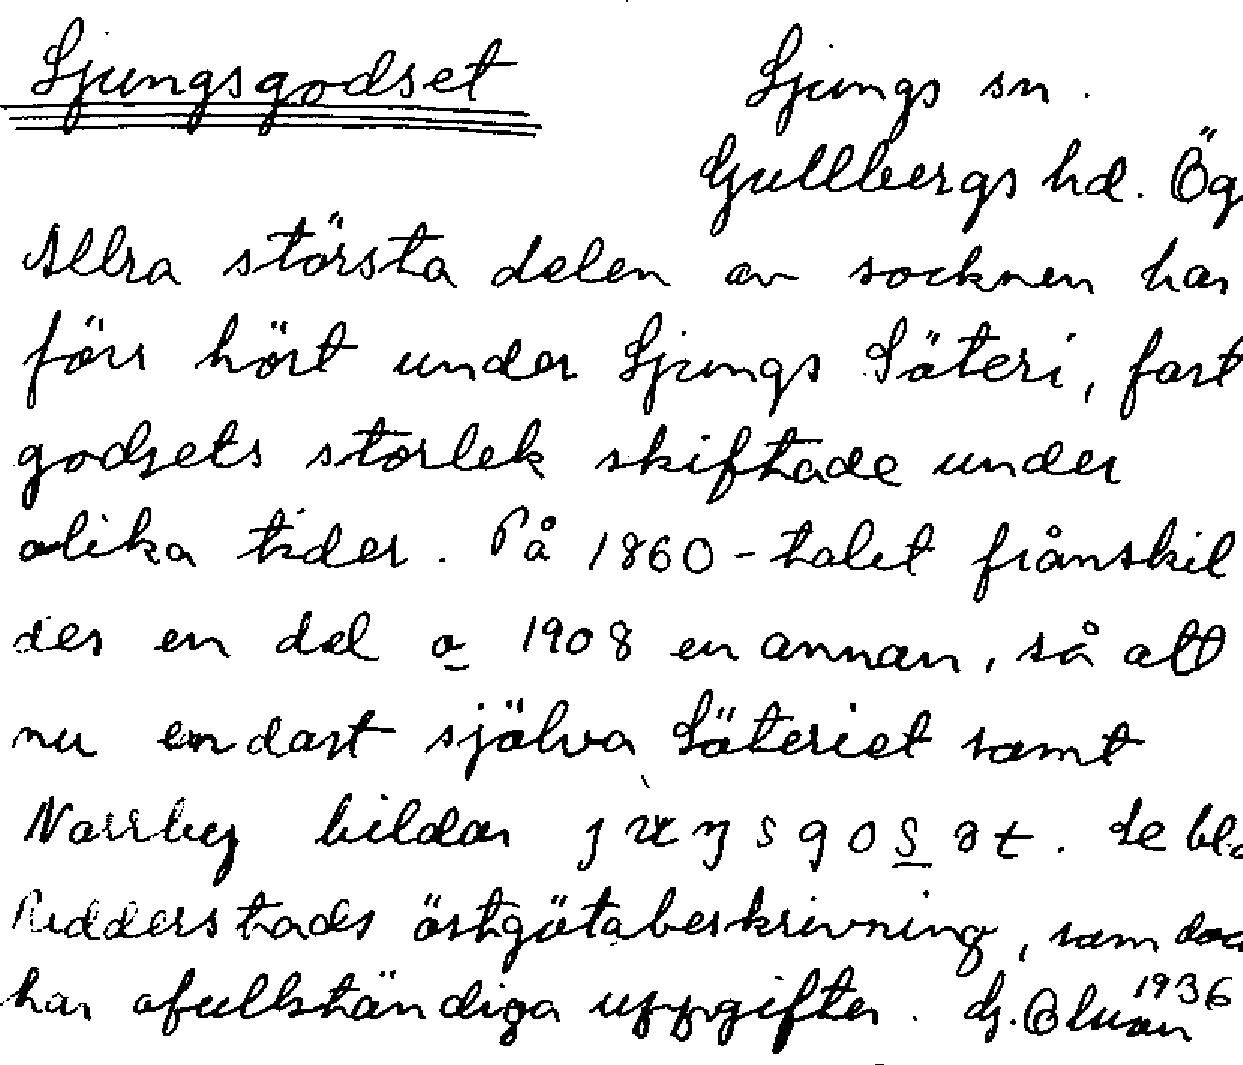 Ljungsgodset
Ljungs sn.
Gullbergs hd. Ög
Allra största delen av socknen har
förr hört under Ljungs Säteri, fast
godsets storlek skiftade under
olika tider. På 1860-talet frånskil
des en del o 1908 en annan, så att
nu endast själva Säteriet samt
Norrby bildar
. Se bla
Ridderstads östgötabeskrivning, som doc
har ofullständiga uppgifter. G.
1936